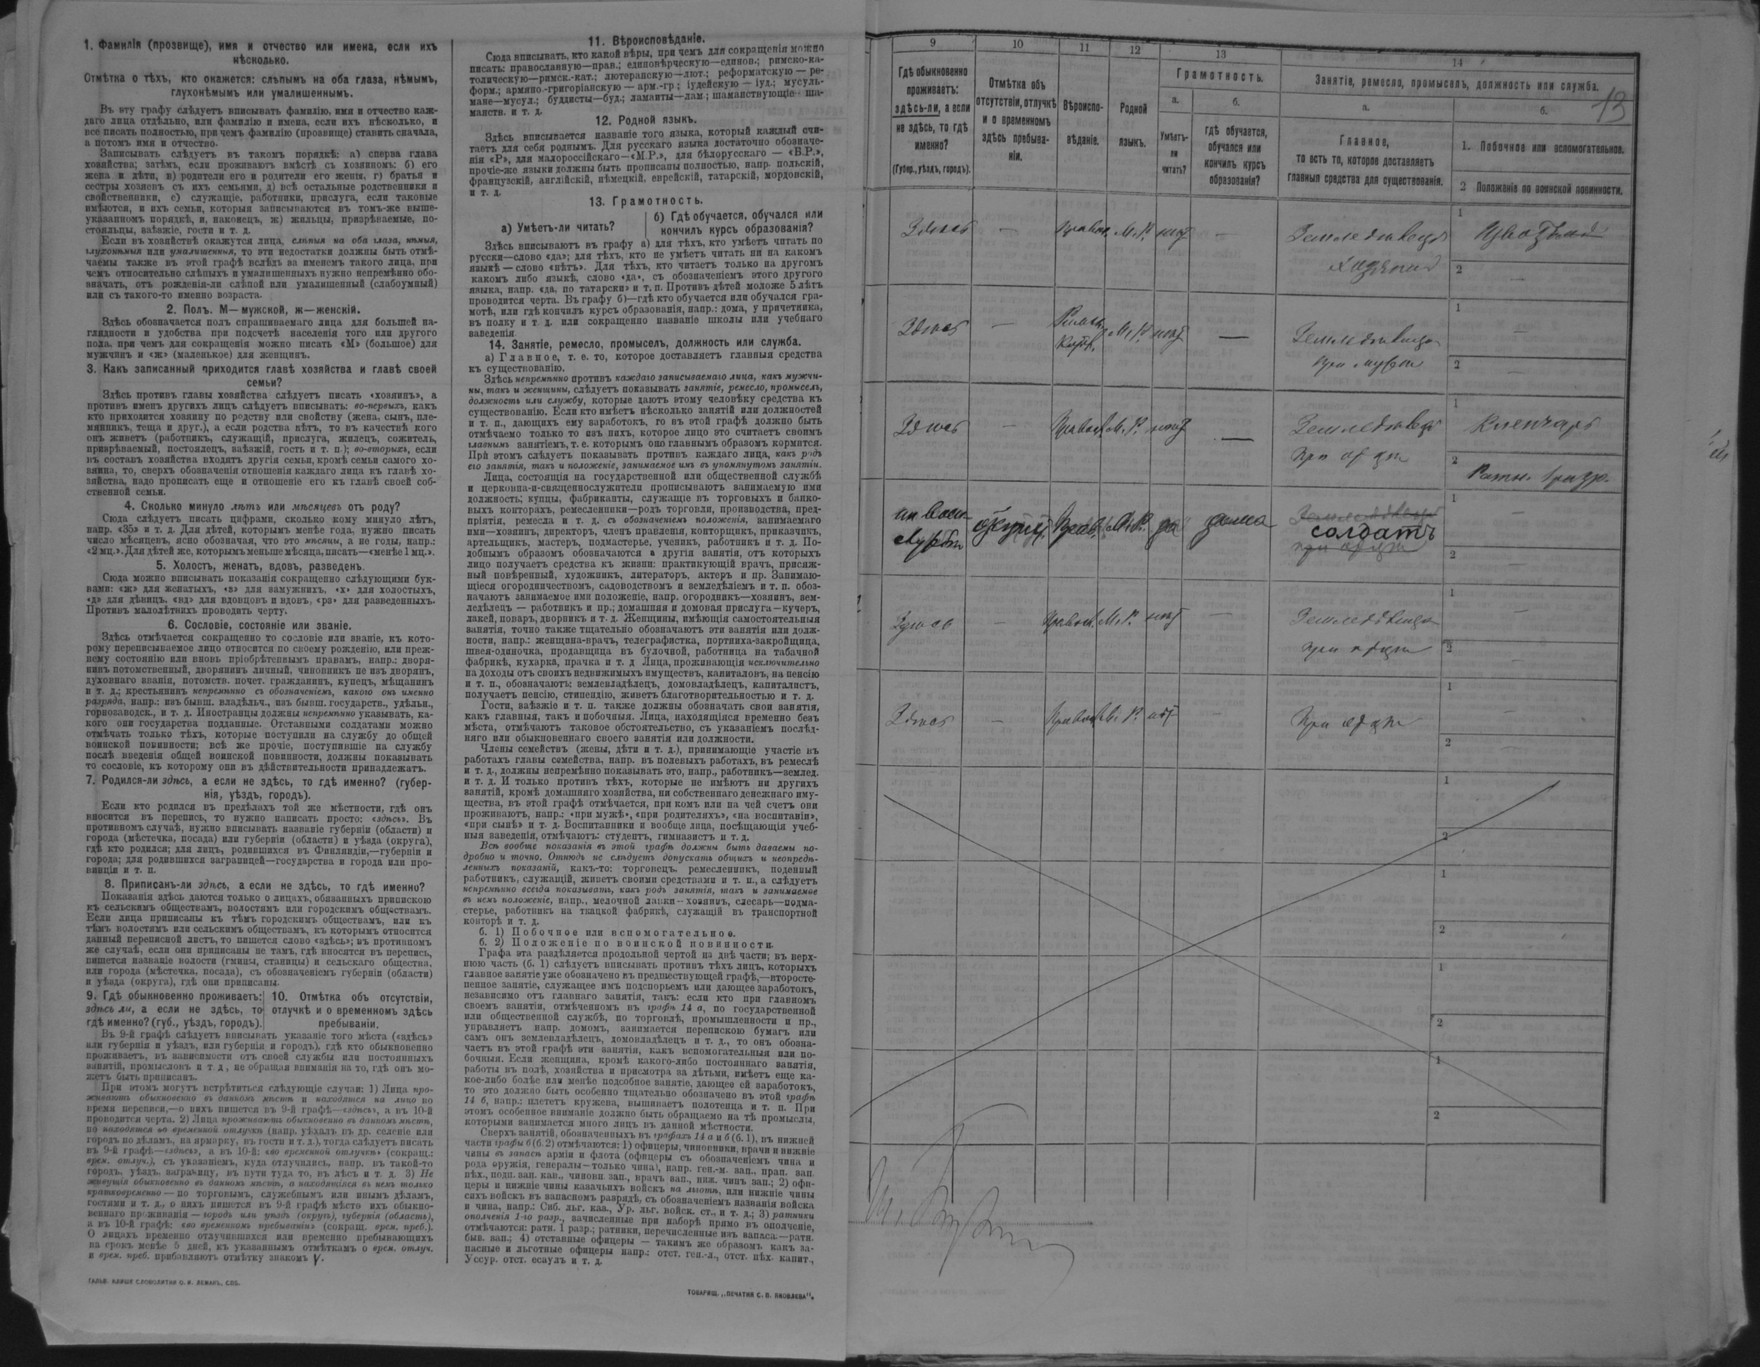 1. Фамилія (прозвище), имя и отчество или имена, если ихъ
нѣсколько.
Отмѣтка о тѣхъ, кто окажется: слѣпымъ на оба глаза, нѣмымъ,
глухонѣмымъ или умалишеннымъ.
Въ эту графу слѣдуетъ вписывать фамилію, имя и отчество каж-
даго лица отдѣльно, или фамилію и имена, если ихъ нѣсколько, и
все писать полностью, при чемъ фамилію (прозвище) ставить сначала,
а потомъ имя и отчество.
Записывать слѣдуетъ въ такомъ порядкѣ: а) сперва глава
хозяйства; затѣмъ, если проживаютъ вмѣстѣ съ хозяиномъ: б) его
жена и дѣти, в) родители его и родители его жены, г) братья и
сестры хозяевъ съ ихъ семьями, д) всѣ остальные родственники и
свойственники, е) служащіе, работники, прислуга, если таковые
имѣются, и ихъ семьи, которыя записываются въ томъ-же выше-
указанномъ порядкѣ, и, наконецъ, ж) жильцы, призрѣваемые, по-
стояльцы, заѣзжіе, гости и т. д.
Если въ хозяйствѣ окажутся лица, слѣпыя на оба глаза, нѣмыя,
глухонѣмыя или умалишенныя, то эти недостатки должны быть отмѣ-
чаемы также въ этой графѣ вслѣдъ за именемъ такого лица, при
чемъ относительно слѣпыхъ и умалишенныхъ нужно непремѣнно обо-
значать, отъ рожденія-ли слѣпой или умалишенный (слабоумный)
или съ такого-то именно возраста.
2. Полъ. М—мужской, ж—женскій.
Здѣсь обозначается полъ спрашиваемаго лица для большей на-
глядности и удобства при подсчетѣ населенія того или другого
пола, при чемъ для сокращенія можно писать «М» (большое) для
мужчинъ и «ж» (маленькое) для женщинъ.
3. Какъ записанный приходится главѣ хозяйства и главѣ своей
семьи?
Здѣсь противъ главы хозяйства слѣдуетъ писать «хозяинъ», а
противъ именъ другихъ лицъ слѣдуетъ вписывать: во-первыхъ, какъ
кто приходится хозяину по родству или свойству (жена, сынъ, пле-
мянникъ, теща и друг.), а если родства нѣтъ, то въ качествѣ кого
онъ живетъ (работникъ, служащій, прислуга, жилецъ, сожитель,
призрѣваемый, постоялецъ, заѣзжій, гость и т. п.); во-вторыхъ, если
въ составъ хозяйства входятъ другія семьи, кромѣ семьи самого хо-
зяина, то, сверхъ обозначенія отношенія каждаго лица къ главѣ хо-
зяйства, надо прописать еще и отношеніе его къ главѣ своей соб-
ственной семьи.
4. Сколько минуло лѣтъ или мѣсяцевъ отъ роду?
Сюда слѣдуетъ писать цифрами, сколько кому минуло лѣтъ,
напр. «35» и т. д. Для дѣтей, которымъ менѣе года, нужно писать
число мѣсяцевъ, ясно обозначая, что это мѣсяцы, а не годы, напр.:
«2 мц.». Для дѣтей же, которымъ меньше мѣсяца, писать—«менѣе 1 мц.».
5. Холостъ, женатъ, вдовъ, разведенъ.
Сюда можно вписывать показанія сокращенно слѣдующими бук-
вами: «ж» для женатыхъ, «з» для замужнихъ, «х» для холостыхъ,
«д» для дѣвицъ, «вд» для вдовцовъ и вдовъ, «рз» для разведенныхъ.
Противъ малолѣтнихъ проводить черту.
6. Сословіе, состояніе или званіе.
Здѣсь отмѣчается сокращенно то сословіе или званіе, къ кото-
рому переписываемое лицо относится по своему рожденію, или преж-
нему состоянію или вновь пріобрѣтеннымъ правамъ, напр.: дворя-
нинъ потомственный, дворянинъ личный, чиновникъ не изъ дворянъ,
духовнаго званія, потомств. почет. гражданинъ, купецъ, мѣщанинъ
и т. д.; крестьянинъ непремѣнно съ обозначеніемъ, какого онъ именно
разряда, напр.: изъ бывш. владѣльч., изъ бывш. государств., удѣльн.,
горнозаводск., и т. д. Иностранцы должны непремѣнно указывать, ка-
кого они государства подданные. Отставными солдатами можно
отмѣчать только тѣхъ, которые поступили на службу до общей
воинской повинности; всѣ же прочіе, поступившіе на службу
послѣ введенія общей воинской повинности, должны показывать
то сословіе, къ которому они въ дѣйствительности принадлежатъ.
7. Родился-ли здѣсь, а если не здѣсь, то гдѣ именно? (губер-
нія, уѣздъ, городъ).
Если кто родился въ предѣлахъ той же мѣстности, гдѣ онъ
вносится въ перепись, то нужно написать просто: «здѣсь». Въ
противномъ случаѣ, нужно вписывать названіе губерніи (области) и
города (мѣстечка, посада) или губерніи (области) и уѣзда (округа),
гдѣ кто родился; для лицъ, родившихся въ Финляндіи,—губерніи и
города; для родившихся заграницей—государства и города или про-
винціи и т. п.
8. Приписанъ-ли здѣсь, а если не здѣсь, то гдѣ именно?
Показанія здѣсь даются только о лицахъ, обязанныхъ припискою
къ сельскимъ обществамъ, волостямъ или городскимъ обществамъ.
Если лица приписаны къ тѣмъ городскимъ обществамъ, или къ
тѣмъ волостямъ или сельскимъ обществамъ, къ которымъ относится
данный переписной листъ, то пишется слово «здѣсь»; въ противномъ
же случаѣ, если они приписаны не тамъ, гдѣ вносятся въ перепись,
пишется названіе волости (гмины, станицы) и сельскаго общества,
или города (мѣстечка, посада), съ обозначеніемъ губерніи (области)
и уѣзда (округа), гдѣ они приписаны.
9. Гдѣ обыкновенно проживаетъ:
здѣсь ли, а если не здѣсь, то
гдѣ именно? (губ., уѣздъ, городъ).
10. Отмѣтка объ отсутствіи,
отлучкѣ и о временномъ здѣсь
пребываніи.
Въ 9-й графѣ слѣдуетъ вписывать указаніе того мѣста («здѣсь»
или губернія и уѣздъ, или губернія и городъ), гдѣ кто обыкновенно
проживаетъ, въ зависимости отъ своей службы или постоянныхъ
занятій, промысловъ и т. д., не обращая вниманія на то, гдѣ онъ мо-
жетъ быть приписанъ.
При этомъ могутъ встрѣтиться слѣдующіе случаи: 1) Лица про-
живаютъ обыкновенно въ данномъ мѣстѣ и находятся на лицо во
время переписи,—о нихъ пишется въ 9-й графѣ—«здѣсь», а въ 10-й
проводится черта. 2) Лица проживаютъ обыкновенно въ данномъ мѣстѣ,
но находятся во временной отлучкѣ (напр. уѣхалъ въ др. селеніе или
городъ по дѣламъ, на ярмарку, въ гости и т. д.), тогда слѣдуетъ писать
въ 9-й графѣ—«здѣсь», а въ 10-й: «во временной отлучкѣ» (сокращ.:
врем. отлуч.), съ указаніемъ, куда отлучились, напр. въ такой-то
городъ, уѣздъ, заграницу, въ пути туда то, въ лѣсъ и т. д. 3) Не
живущія обыкновенно въ данномъ мѣстѣ, а находящіяся въ немъ только
кратковременно — по торговымъ, служебнымъ или инымъ дѣламъ,
гостями и т. д., о нихъ пишется въ 9-й графѣ мѣсто ихъ обыкно-
веннаго проживанія — городъ или уѣздъ (округъ), губернія (область),
а въ 10-й графѣ: «во временномъ пребываніи» (сокращ. врем. преб.).
О лицахъ временно отлучившихся или временно пребывающихъ
на срокъ менѣе 5 дней, къ указаннымъ отмѣткамъ о врем. отлуч.
и врем. преб. прибавлять отмѣтку знакомъ V.
11. Вѣроисповѣданіе.
Сюда вписывать, кто какой вѣры, при чемъ для сокращенія можно
писать: православную—прав.; единовѣрческую—единов.; римско-ка-
толическую—римск.-кат.; лютеранскую—лют.; реформатскую — ре-
форм.; армяно-григоріанскую — арм.-гр; іудейскую — іуд.; мусуль-
мане—мусул.; буддисты—буд.; ламаиты—лам; шаманствующіе—ша-
манств. и т. д.
12. Родной языкъ.
Здѣсь вписывается названіе того языка, который каждый счи-
таетъ для себя роднымъ. Для русскаго языка достаточно обозначе-
нія «Р», для малороссійскаго—«М.Р.», для бѣлорусскаго — «Б.Р.»,
прочіе-же языки должны быть прописаны полностью, напр. польскій,
французскій, англійскій, нѣмецкій, еврейскій, татарскій, мордовскій,
и т. д.
13. Грамотность.
а) Умѣетъ-ли читать?
б) Гдѣ обучается, обучался или
кончилъ курсъ образованія?
Здѣсь вписываютъ въ графу а) для тѣхъ, кто умѣетъ читать по
русски—слово «да»; для тѣхъ, кто не умѣетъ читать ни на какомъ
языкѣ — слово «нѣтъ». Для тѣхъ, кто читаетъ только на другомъ
какомъ либо языкѣ, слово «да», съ обозначеніемъ этого другого
языка, напр. «да, по татарски» и т. п. Противъ дѣтей моложе 5 лѣтъ
проводится черта. Въ графу б)—гдѣ кто обучается или обучался гра-
мотѣ, или гдѣ кончилъ курсъ образованія, напр.: дома, у причетника,
въ полку и т. д. или сокращенно названіе школы или учебнаго
заведенія.
14. Занятіе, ремесло, промыселъ, должность или служба.
а) Главное, т. е. то, которое доставляетъ главныя средства
къ существованію.
Здѣсь непремѣнно противъ каждаго записываемаго лица, какъ мужчи-
ны, такъ и женщины, слѣдуетъ показывать занятіе, ремесло, промыселъ,
должность или службу, которые даютъ этому человѣку средства къ
существованію. Если кто имѣетъ нѣсколько занятій или должностей
и т. п., дающихъ ему заработокъ, то въ этой графѣ должно быть
отмѣчаемо только то изъ нихъ, которое лицо это считаетъ своимъ
главнымъ занятіемъ, т. е. которымъ оно главнымъ образомъ кормится.
При этомъ слѣдуетъ показывать противъ каждаго лица, какъ родъ
его занятія, такъ и положеніе, занимаемое имъ въ упомянутомъ занятіи.
Лица, состоящія на государственной или общественной службѣ
и церковно-и-священнослужители прописываютъ занимаемую ими
должность; купцы, фабриканты, служащіе въ торговыхъ и банко-
выхъ конторахъ, ремесленники—родъ торговли, производства, пред-
пріятія, ремесла и т. д. съ обозначеніемъ положенія, занимаемаго
ими—хозяинъ, директоръ, членъ правленія, конторщикъ, приказчикъ,
артельщикъ, мастеръ, подмастерье, ученикъ, работникъ и т. д. По-
добнымъ образомъ обозначаются и другія занятія, отъ которыхъ
лицо получаетъ средства къ жизни: практикующій врачъ, присяж-
ный повѣренный, художникъ, литераторъ, актеръ и пр. Занимаю-
щіеся огородничествомъ, садоводствомъ и земледѣліемъ и т. п. обоз-
начаютъ занимаемое ими положеніе, напр. огородникъ—хозяинъ, зем-
ледѣлецъ — работникъ и пр.; домашняя и домовая прислуга—кучеръ,
лакей, поваръ, дворникъ и т. д. Женщины, имѣющія самостоятельныя
занятія, точно также тщательно обозначаютъ эти занятія или долж-
ности, напр.: женщина-врачъ, телеграфистка, портниха-закройщица,
швея-одиночка, продавщица въ булочной, работница на табачной
фабрикѣ, кухарка, прачка и т. д. Лица, проживающія исключительно
на доходы отъ своихъ недвижимыхъ имуществъ, капиталовъ, на пенсію
и т. п., обозначаютъ: землевладѣлецъ, домовладѣлецъ, капиталистъ,
получаетъ пенсію, стипендію, живетъ благотворительностью и т. д.
Гости, заѣзжіе и т. п. также должны обозначать свои занятія,
какъ главныя, такъ и побочныя. Лица, находящіяся временно безъ
мѣста, отмѣчаютъ таковое обстоятельство, съ указаніемъ послѣд-
няго или обыкновеннаго своего занятія или должности.
Члены семействъ (жены, дѣти и т. д.), принимающіе участіе въ
работахъ главы семейства, напр. въ полевыхъ работахъ, въ ремеслѣ
и т. д., должны непремѣнно показывать это, напр., работникъ—землед.
и т. д. И только противъ тѣхъ, которые не имѣютъ ни другихъ
занятій, кромѣ домашняго хозяйства, ни собственнаго денежнаго иму-
щества, въ этой графѣ отмѣчается, при комъ или на чей счетъ они
проживаютъ, напр.: «при мужѣ», «при родителяхъ», «на воспитаніи»,
«при сынѣ» и т. д. Воспитанники и вообще лица, посѣщающія учеб-
ныя заведенія, отмѣчаютъ: студентъ, гимназистъ и т. д.
Всѣ вообще показанія въ этой графѣ должны быть даваемы по-
дробно и точно. Отнюдь не слѣдуетъ допускать общихъ и неопредѣ-
ленныхъ показаній, какъ-то: торговецъ, ремесленникъ, поденный
работникъ, служащій, живетъ своими средствами и т. п., а слѣдуетъ
непремѣнно всегда показывать, какъ родъ занятія, такъ и занимаемое
въ немъ положеніе, напр., мелочной лавки—хозяинъ, слесарь—подма-
стерье, работникъ на ткацкой фабрикѣ, служащій въ транспортной
конторѣ и т. д.
б. 1) Побочное или вспомогательное.
б. 2) Положеніе по воинской повинности.
Графа эта раздѣляется продольной чертой на двѣ части; въ верх-
нюю часть (б. 1) слѣдуетъ вписывать противъ тѣхъ лицъ, которыхъ
главное занятіе уже обозначено въ предшествующей графѣ,—второсте-
пенное занятіе, служащее имъ подспорьемъ или дающее заработокъ,
независимо отъ главнаго занятія, такъ: если кто при главномъ
своемъ занятіи, отмѣченномъ въ графѣ 14 а, по государственной
или общественной службѣ, по торговлѣ, промышленности и пр.,
управляетъ напр. домомъ, занимается перепискою бумагъ или
самъ онъ землевладѣлецъ, домовладѣлецъ и т. д., то онъ обозна-
чаетъ въ этой графѣ эти занятія, какъ вспомогательныя или по-
бочныя. Если женщина, кромѣ какого-либо постояннаго занятія,
работы въ полѣ, хозяйства и присмотра за дѣтьми, имѣетъ еще ка-
кое-либо болѣе или менѣе подсобное занятіе, дающее ей заработокъ,
то это должно быть особенно тщательно обозначено въ этой графѣ
14 б, напр.: плететъ кружева, вышиваетъ полотенца и т. п. При
этомъ особенное вниманіе должно быть обращаемо на тѣ промыслы,
которыми занимается много лицъ въ данной мѣстности.
Сверхъ занятій, обозначенныхъ въ графахъ 14 а и б (б. 1), въ нижней
части графы б (б. 2) отмѣчаются: 1) офицеры, чиновники, врачи и нижніе
чины въ запасѣ арміи и флота (офицеры съ обозначеніемъ чина и
рода оружія, генералы—только чина), напр. ген.-м. зап., прап. зап.
пѣх., подп. зап. кав., чиновн. зап., врачъ зап., ниж. чинъ зап.; 2) офи-
церы и нижніе чины казачьихъ войскъ на льготѣ, или нижніе чины
сихъ войскъ въ запасномъ разрядѣ, съ обозначеніемъ названія войска
и чина, напр.: Сиб. льг. каз., Ур. льг. войск. ст., и т. д.; 3) ратники
ополченія 1-го разр., зачисленные при наборѣ прямо въ ополченіе,
отмѣчаются: ратн. 1 разр.; ратники, перечисленные изъ запаса:—ратн.
быв. зап.; 4) отставные офицеры — такимъ же образомъ какъ за-
пасные и льготные офицеры напр.: отст. ген.-л., отст. пѣх. капит.,
Уссур. отст. есаулъ и т. д.
ТОВАРИЩ. „ПЕЧАТНЯ С. П. ЯКОВЛЕВА".
9 10 11 12 13 14
13
Гдѣ обыкновенно
проживаетъ:
здѣсь-ли, а если
не здѣсь, то гдѣ
именно?
(Губер., уѣздъ, городъ).
Отмѣтка объ
отсутствіи, отлучкѣ
и о временномъ
здѣсь пребыва-
ніи.
Вѣроиспо-
вѣданіе.
Родной
языкъ.
Грамотность.
а.
Умѣетъ-
ли
читать?
б.
гдѣ обучается,
обучался или
кончилъ курсъ
образованія?
Занятіе, ремесло, промыселъ, должность или служба.
а.
Главное,
то есть то, которое доставляетъ
главныя средства для существованія.
б.
1. Побочное или вспомогательное.
2 Положеніе по воинской повинности.
1
Здѣсь — Правос. М.Р. нѣтъ — Земледѣлецъ
хозяинъ
2 —
1 —
Здѣсь — М.Р. нѣтъ —
при мужѣ
2 —
1
Здѣсь — Правос. М.Р. нѣтъ — Земледѣлецъ
при отцѣ
2 Ратн. 1 разр.
1 —
на воен.
службѣ Прав. М.Р. да дома
солдатъ
2 —
1 —
Здѣсь — Правос. М.Р. нѣтъ —
2 —
1 —
Здѣсь — Правос. М.Р. нѣтъ — при отцѣ
2 —
1
2
1
2
1
2
1
2